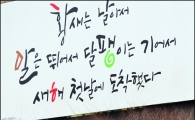 황새는 날아서
말은 뛰어서 달팽이는 기어서
새해 첫날에 도착했다